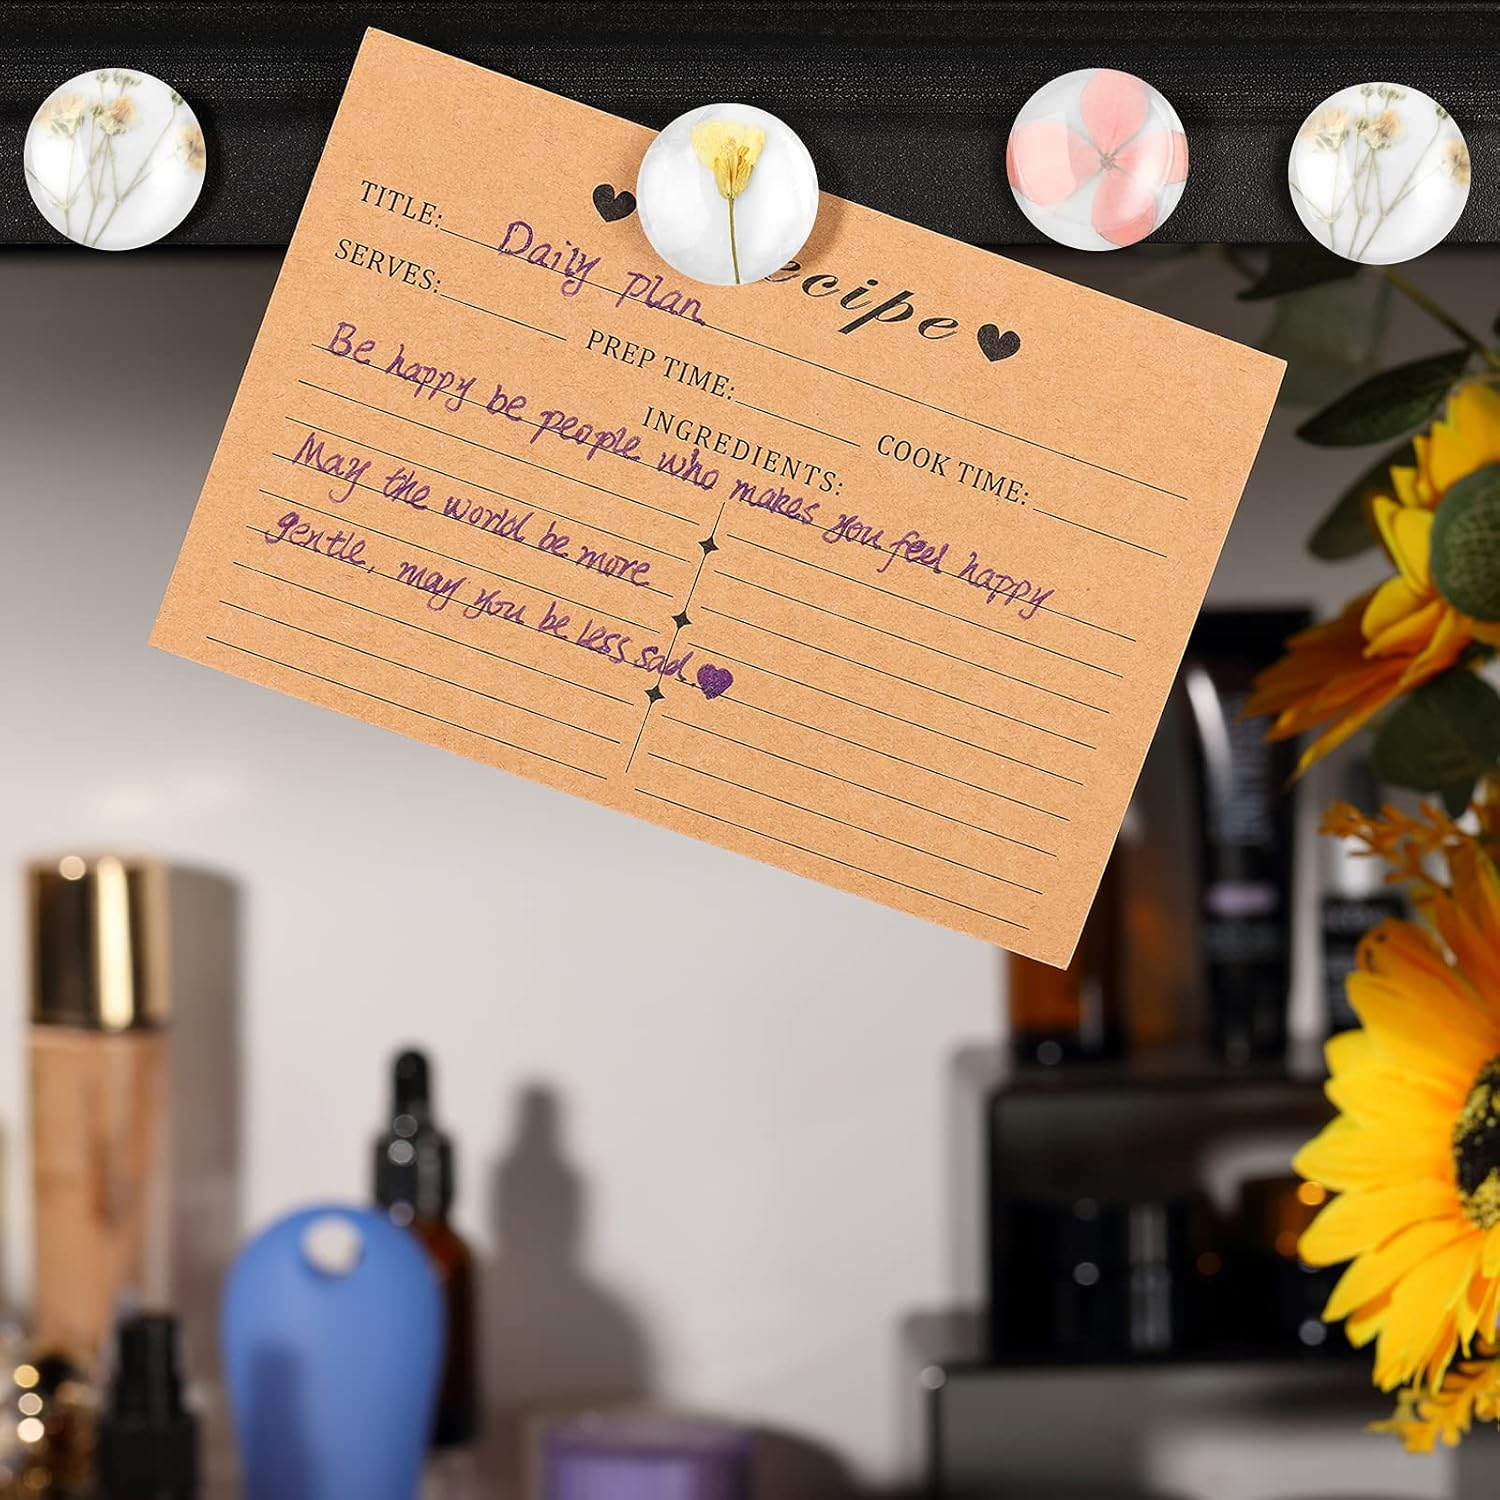 ecipe
TITLE: Daily plan
SERVES: PREP TIME: COOK TIME:
INGREDIENTS:
Be happy be people who makes you feel happy
May the world be more
gentle, may you be less sad.